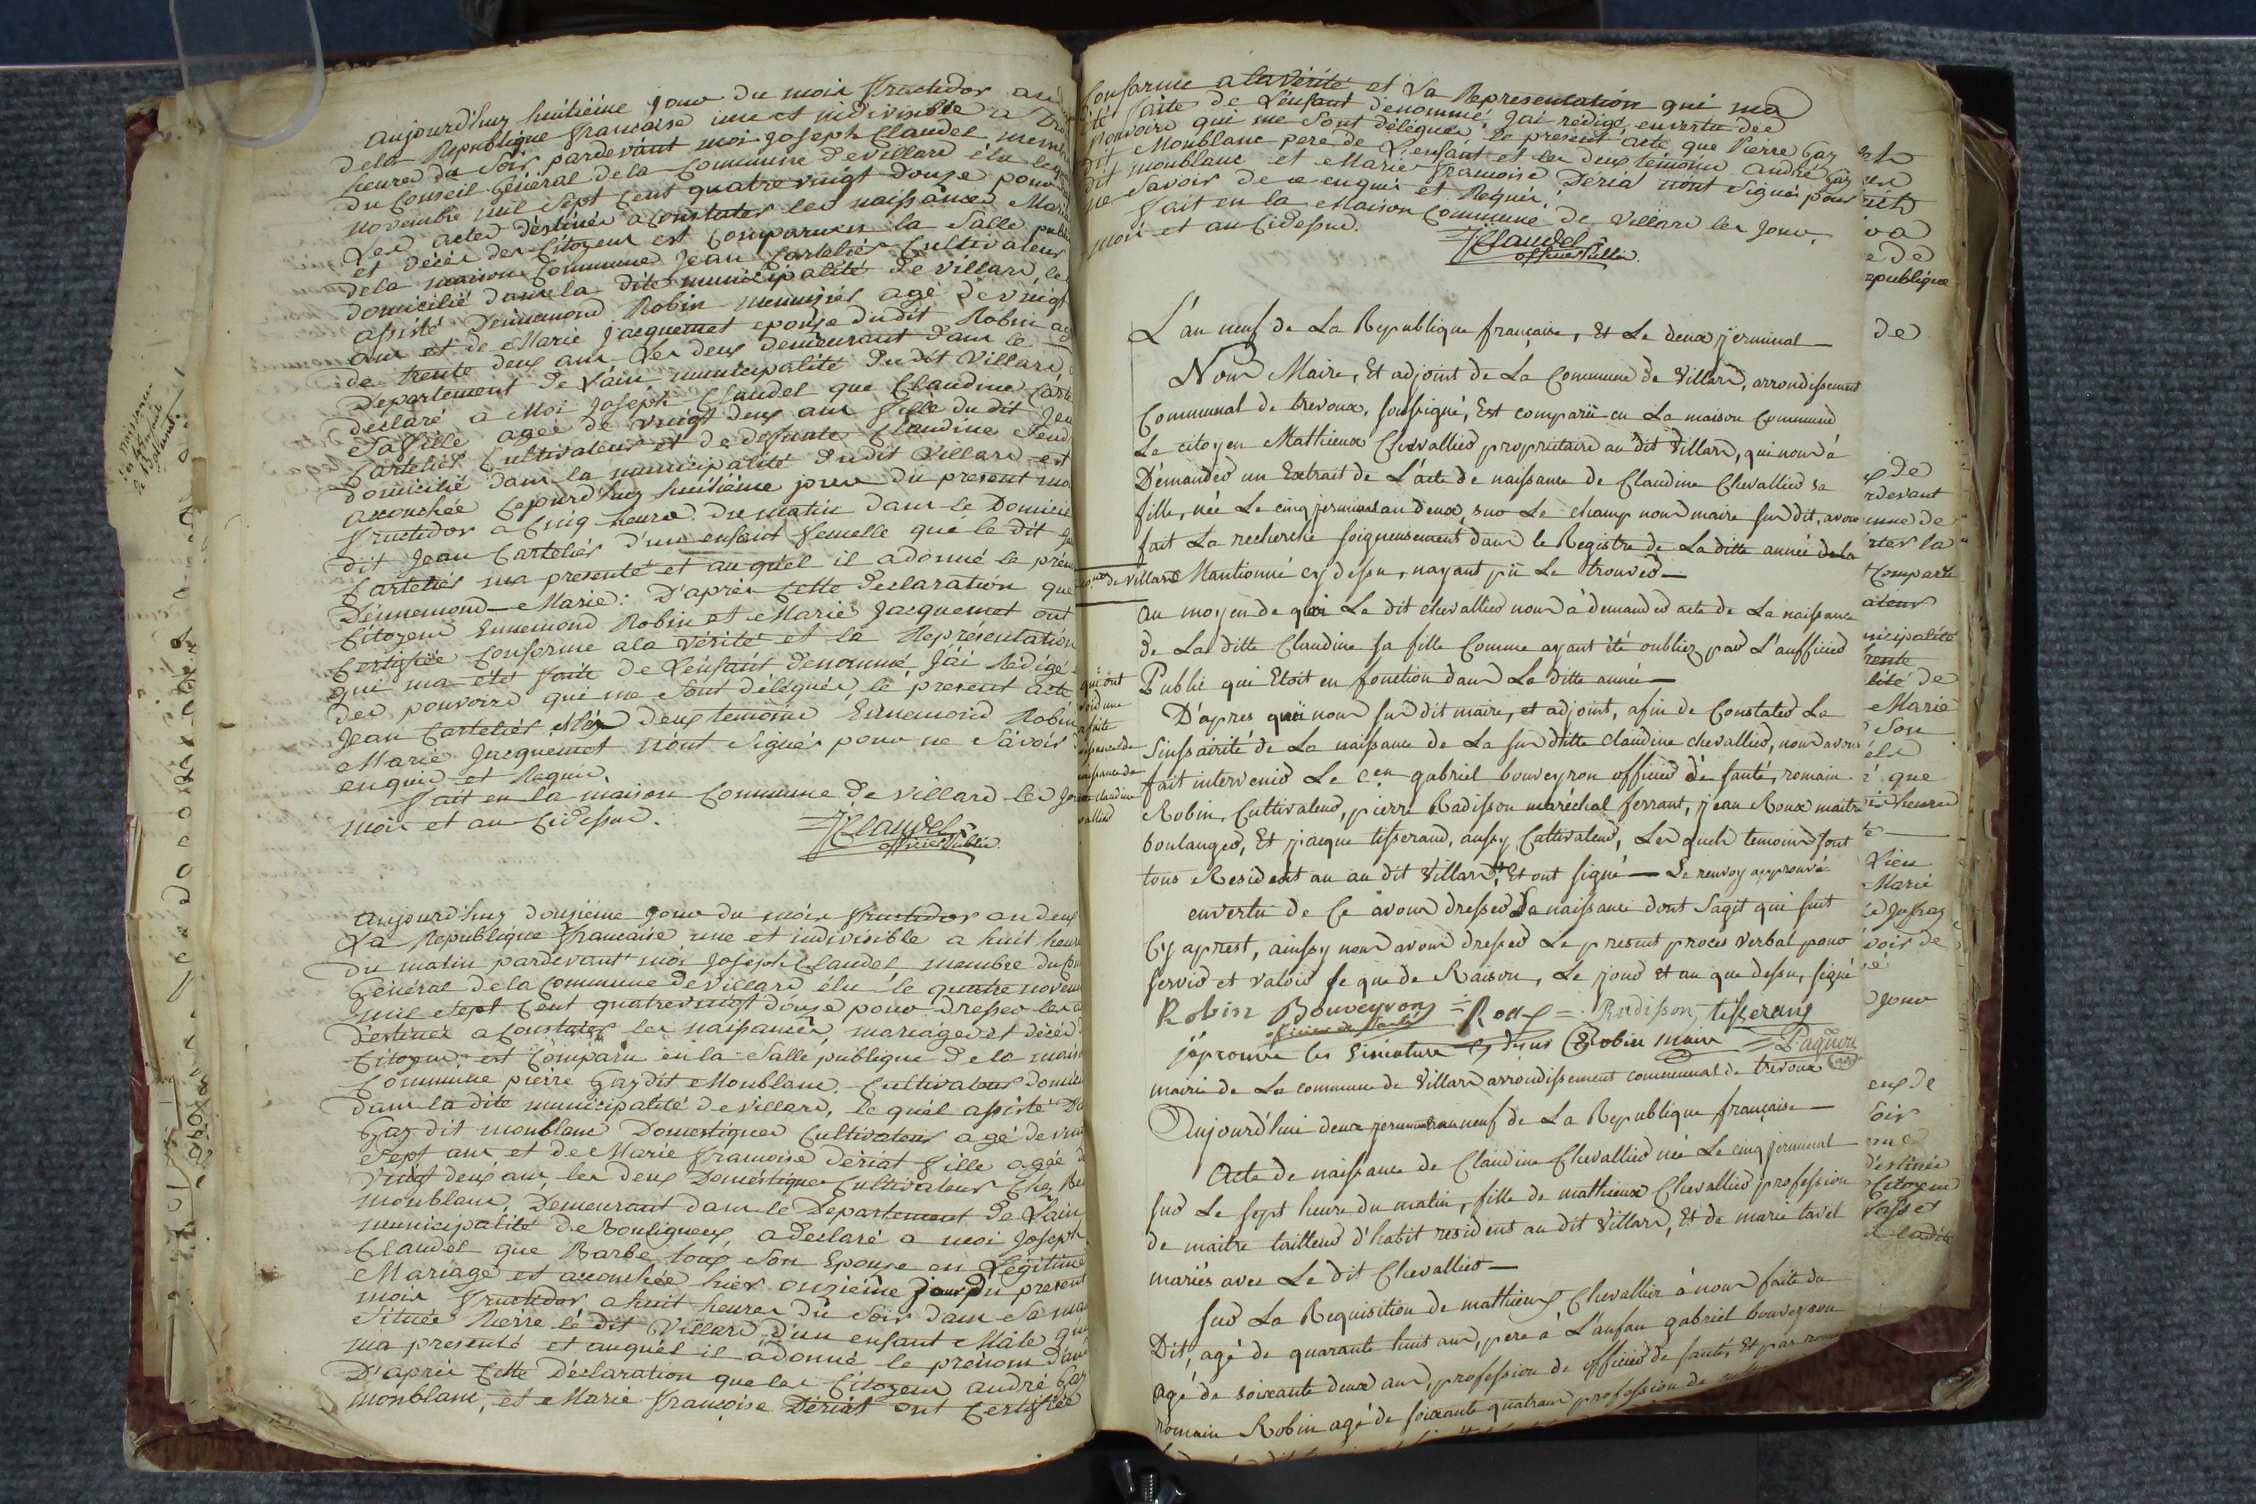 aujourd'huy huitiéme jour du mois fructidor an
de la Republique francaise une et indivisible a
heures du Soir pardevant moi Joseph Claudel membre
du Conseil Général de la Commune de Villard élu le
novembre mil Sept Cent quatre vingt douze pour
Les actes destinés a Constater les naissances Maria
et décés des Citoyens est Comparu en la Salle publi
de la maison Commune Jean Carteliér Cultivateur
domicilié dans la dite municipalité de villard, le
assisté Dennemond Robin menuisiér agé de vingt
ans et de Marie Jacquemet epouse du dit Robin agé
de trente deux ans Les deux demeurant dans le
Departement de L'ain municipalité du dit Villard
declaré a Moi Joseph Claudel que Claudine Carte
Sa fille agée de vingt deux ans fille du dit Jean
Carteliér Cultivateur et de defunte Claudine
domicilié dans la municipalité du dit Villard est
accouchée Cejourd'huy huitiéme jour du present moi
fructidor a Cinq heures du matin dans le Domicile
dit Jean Carteliér d'un enfant femelle que le dit Je
Carteliér ma presenté et auquél il adonné le prén
Dennemond Marie: D'aprés Cette declaration que
Citoyens Ennemond Robin et Marie Jacquemet ont
Certifiée Conforme a la Vérité et la Représentation
qui ma étés faite de L'enfant denommé J'ai Redigé
des pouvoirs qui me Sont délégués, le present acte
Jean Carteliér et les deux temoins Ennemond Robin
Marie Jacquemet n'ont Signés pour ne Savoir
enquis et Requis.
fait en la maison Commune de villard les Jour
mois et an Cidessus.
J Claudel
officier Public

naissance

aujourd'huy douziéme Jour du mois fructidor an deux
La Republique francaise une et indivisible a huit heure
du matin pardevant moi Joseph Claudel, membre du Con
Général de la Commune de villard élu le quatre novem
mil Sept Cent quatre vingt douze pour dresser les a
destinés a Constater les naissances, mariages et décés
Citoyens est Comparu en la Salle publique de la mais
Commune pierre Gay dit Monblanc Cultivateur domicil
dans la dite municipalité de villard, le quél assisté D'a
Gay dit monblanc Domestiques Cultivateur agé de vin
Sept ans et de Marie francoise Dériat fille agée
Vingt deux ans les deux Doméstiques Cultivateurs Chez
monblanc, Demeurant dans le Departement de L'ain
municipalité de Bouligneux, a declaré a moi Joseph
Claudel que Barbe Son Epouse en Légitime
Mariage est accouchée hier onziéme jour du present
mois fructidor a huit heures du Soir dans Sa mai
Située Riere le dit Villard d'un enfant Mâle qu
ma presenté et auquél il adonné le prénom d'an
D'aprés Cette déclaration que les Citoyens andré Gay
monblanc, et Marie francoise Dériat ont Certifiée

Conforme a la Vérité et La Representation qui ma
été faite de L'enfant denommé, Jai rédigé, en vertu des
Pouvoirs qui me Sont délégués le present acte que Pierre Gay
dit Monblanc pere de L'enfant et les deux temoins andré Gay
dit monblanc et Marie francoise Dériat n'ont Signés pour
ne Savoir de ce enquis et Requis.
fait en la Maison Commune de Villard les Jour,
mois et an Cidessus.
J Claudel
officier Public.

L'an neuf de La Republique française, Et Le deux jerminal
Nous Maire, Et adjoint de La Commune de Villard, arrondissement
Communal de trevoux, soussigné, Est comparü en La maison Commune
Le citoyen Mathieux Chevallier propriétaire au dit Villard, qui nous á
Démander un Extrait de L'acte de naissance de Claudine Chevallier sa
fille, née Le cinq jerminal an deux, sur Le champ nous maire sus dit, avons
fait La recherche soigneusement dans le Registre de La ditte année de la
comme de Villard Mantionné cy dessu, nayant pü Le trouver
au moyen de quoi Le dit chevallier nous á demander acte de La naissance
de La ditte Claudine sa fille Comme ayant été oubliez par L'aufficier
Public qui Etoit en fonction dans La ditte année
D'apres quoi nous sus dit maire, et adjoint, afin de Constater La
Sinssairité de La naissance de La sus ditte claudine chevallier, nous avons
fait intervenir Le cen gabriel bouveyron officier de santé, romain
Robin, Cultivateur, pierre Radisson maréchal ferrant, jean Roux maitre
boulanger, Et jacque tisserand, aussy Cultivateur, Les quels temoins sont
tous Resident au au dit Villard, Et ont signé — Le renvoy approuvé
en vertu de Ce avons dresser La naissance dont Sagit qui suit
Cy aprest, ainssy nous avons dresser Le present procès verbal pour
servir et valoir se que de Raison, Le jour et an que dessu, signé
Robin Bouveyron = Roux = Radisson, tisserang
officier de santé
j'aprouve les sinnature cy desus Robin maire = Paquon
adj
mairi de La commune de Villard arrondissement communal de trevoux
Aujourd'hui deux jerminal an neuf de La Republique française
Acte de naissance de Claudine Chevallier née Le cinq jerminal
sur Le sept heure du matin, fille de mathieux Chevallier profession
de maitre tailleur d'habit resident au dit Villard, Et de marie tavel
mariés avec Le dit Chevallier
sur La Requisition de mathieux Chevallier á nous faite du
Dit, agé de quarante huit ans, pere á L'anfan gabriel bouveyron
agé de soixante deux ans, profession de officier de santé, Et par
romain Robin agé de soixante quatrans profession de

qui ont
naissance de
claudine
vallier

republique
de
de
rdevant
mune de
Comparu
ateur
nicipalité
trente
lité de
Marie
Son
que
heures
Lieu
Marie
voir de
Jour
eux de
Soir
destinés
Citoyens